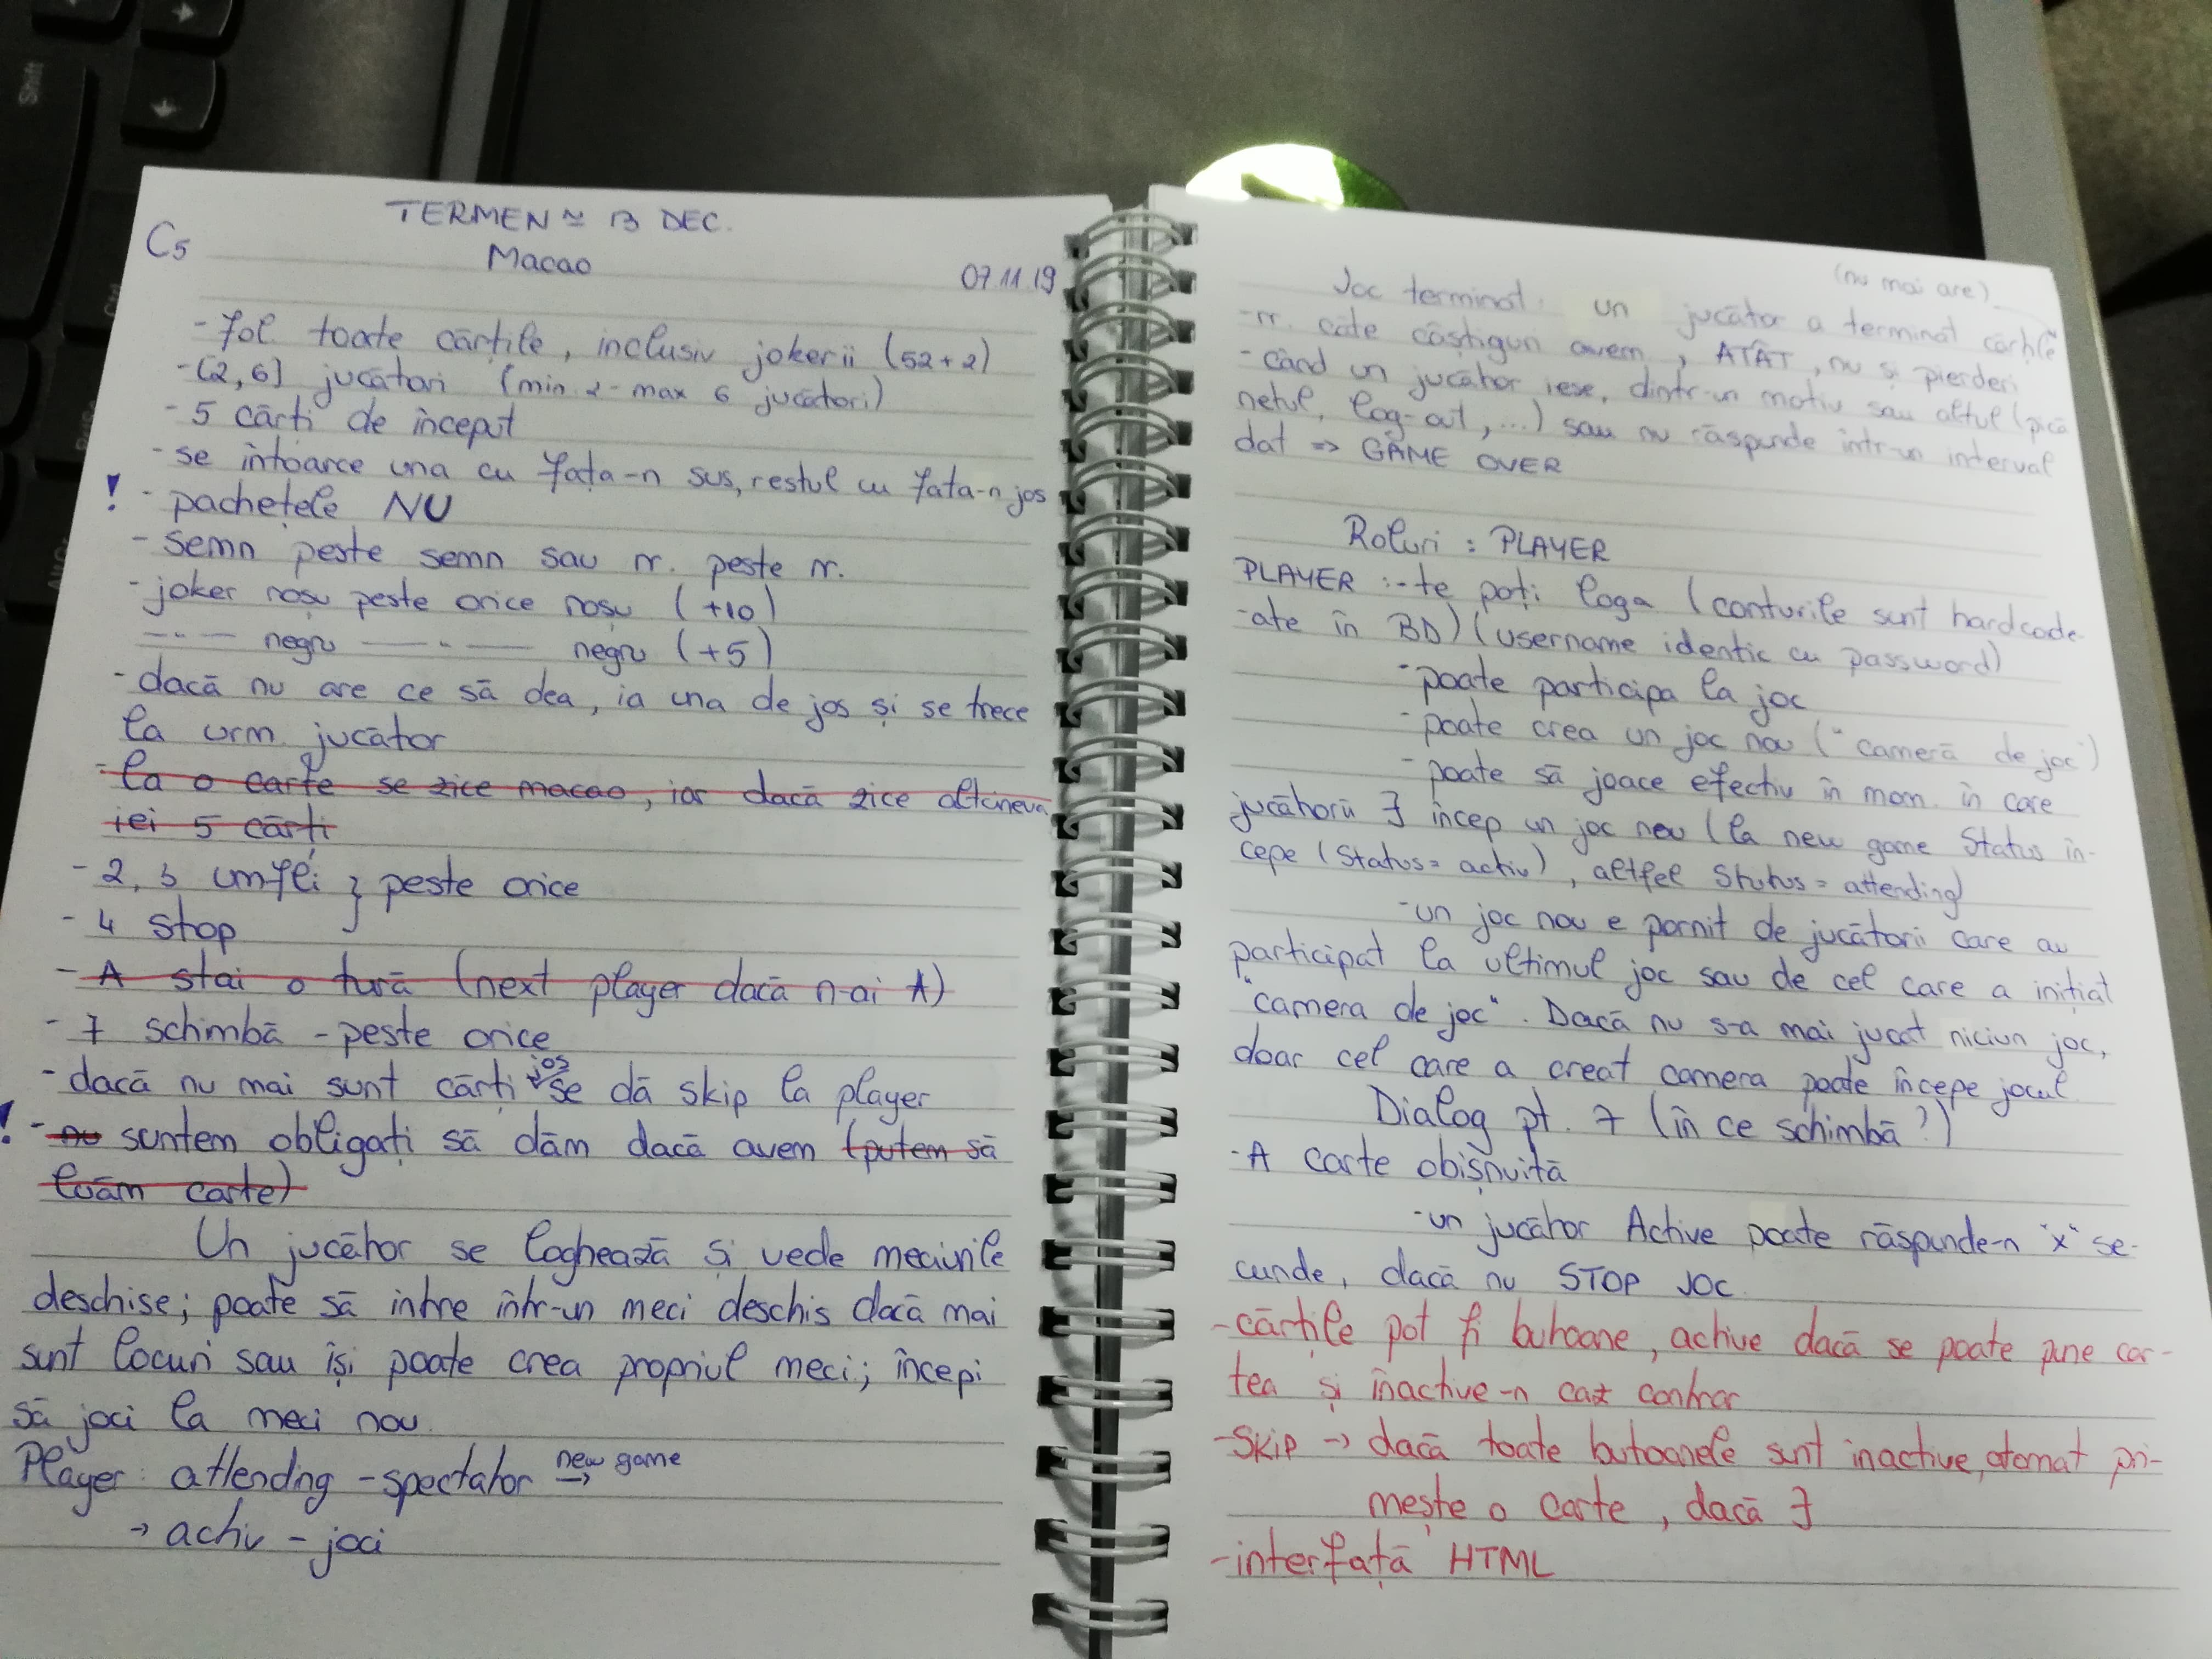 TERMEN ≃ 13 DEC.
C5
Macao
07.11.19
- fol toate cărțile, inclusiv jokerii (52+2)
- [2,6] jucători (min. 2 - max 6 jucători)
- 5 cărți de început
- se întoarce una cu fața-n sus, restul cu fata-n jos
! - pachețele NU
- semn peste semn sau nr. peste nr.
- joker roșu peste orice roșu (+10)
—"— negru —"— negru (+5)
- dacă nu are ce să dea, ia una de jos și se trece
la urm. jucător
- la o carte se zice macao, iar dacă zice altcineva
iei 5 cărți
- 2, 3 umfli } peste orice
- 4 stop
- A stai o tură (next player dacă n-ai A)
- 7 schimbă - peste orice
- dacă nu mai sunt cărți jos se dă skip la player
! - nu suntem obligați să dăm dacă avem (putem să
luăm carte)
Un jucător se loghează și vede meciurile
deschise; poate să intre într-un meci deschis dacă mai
sunt locuri sau își poate crea propriul meci; începi
să joci la meci nou.
Player: attending - spectator new game →
→ activ - joci
(nu mai are)
Joc terminat: un jucător a terminat cărțile
- nr. câte câștiguri avem, ATÂT, nu și pierderi
- când un jucător iese, dintr-un motiv sau altul (pică
netul, log-out, ...) sau nu răspunde într-un interval
dat => GAME OVER
Roluri : PLAYER
PLAYER :- te poți loga (conturile sunt hardcode-
-ate în BD) (username identic cu password)
- poate participa la joc
- poate crea un joc nou ("cameră de joc")
- poate să joace efectiv în mom. în care
jucătorii ∃ încep un joc nou (la new game Status în-
cepe (Status = activ), altfel Status = attending)
- un joc nou e pornit de jucătorii care au
participat la ultimul joc sau de cel care a inițiat
"camera de joc". Dacă nu s-a mai jucat niciun joc,
doar cel care a creat camera poate începe jocul.
Dialog pt. 7 (în ce schimbă?)
- A carte obișnuită
- un jucător Active poate răspunde-n "x" se-
cunde, dacă nu STOP JOC
- cărțile pot fi butoane, active dacă se poate pune car-
tea și inactive-n caz contrar
- SKIP → dacă toate butoanele sunt inactive, atomat pri-
mește o carte, dacă ∃
- interfață HTML